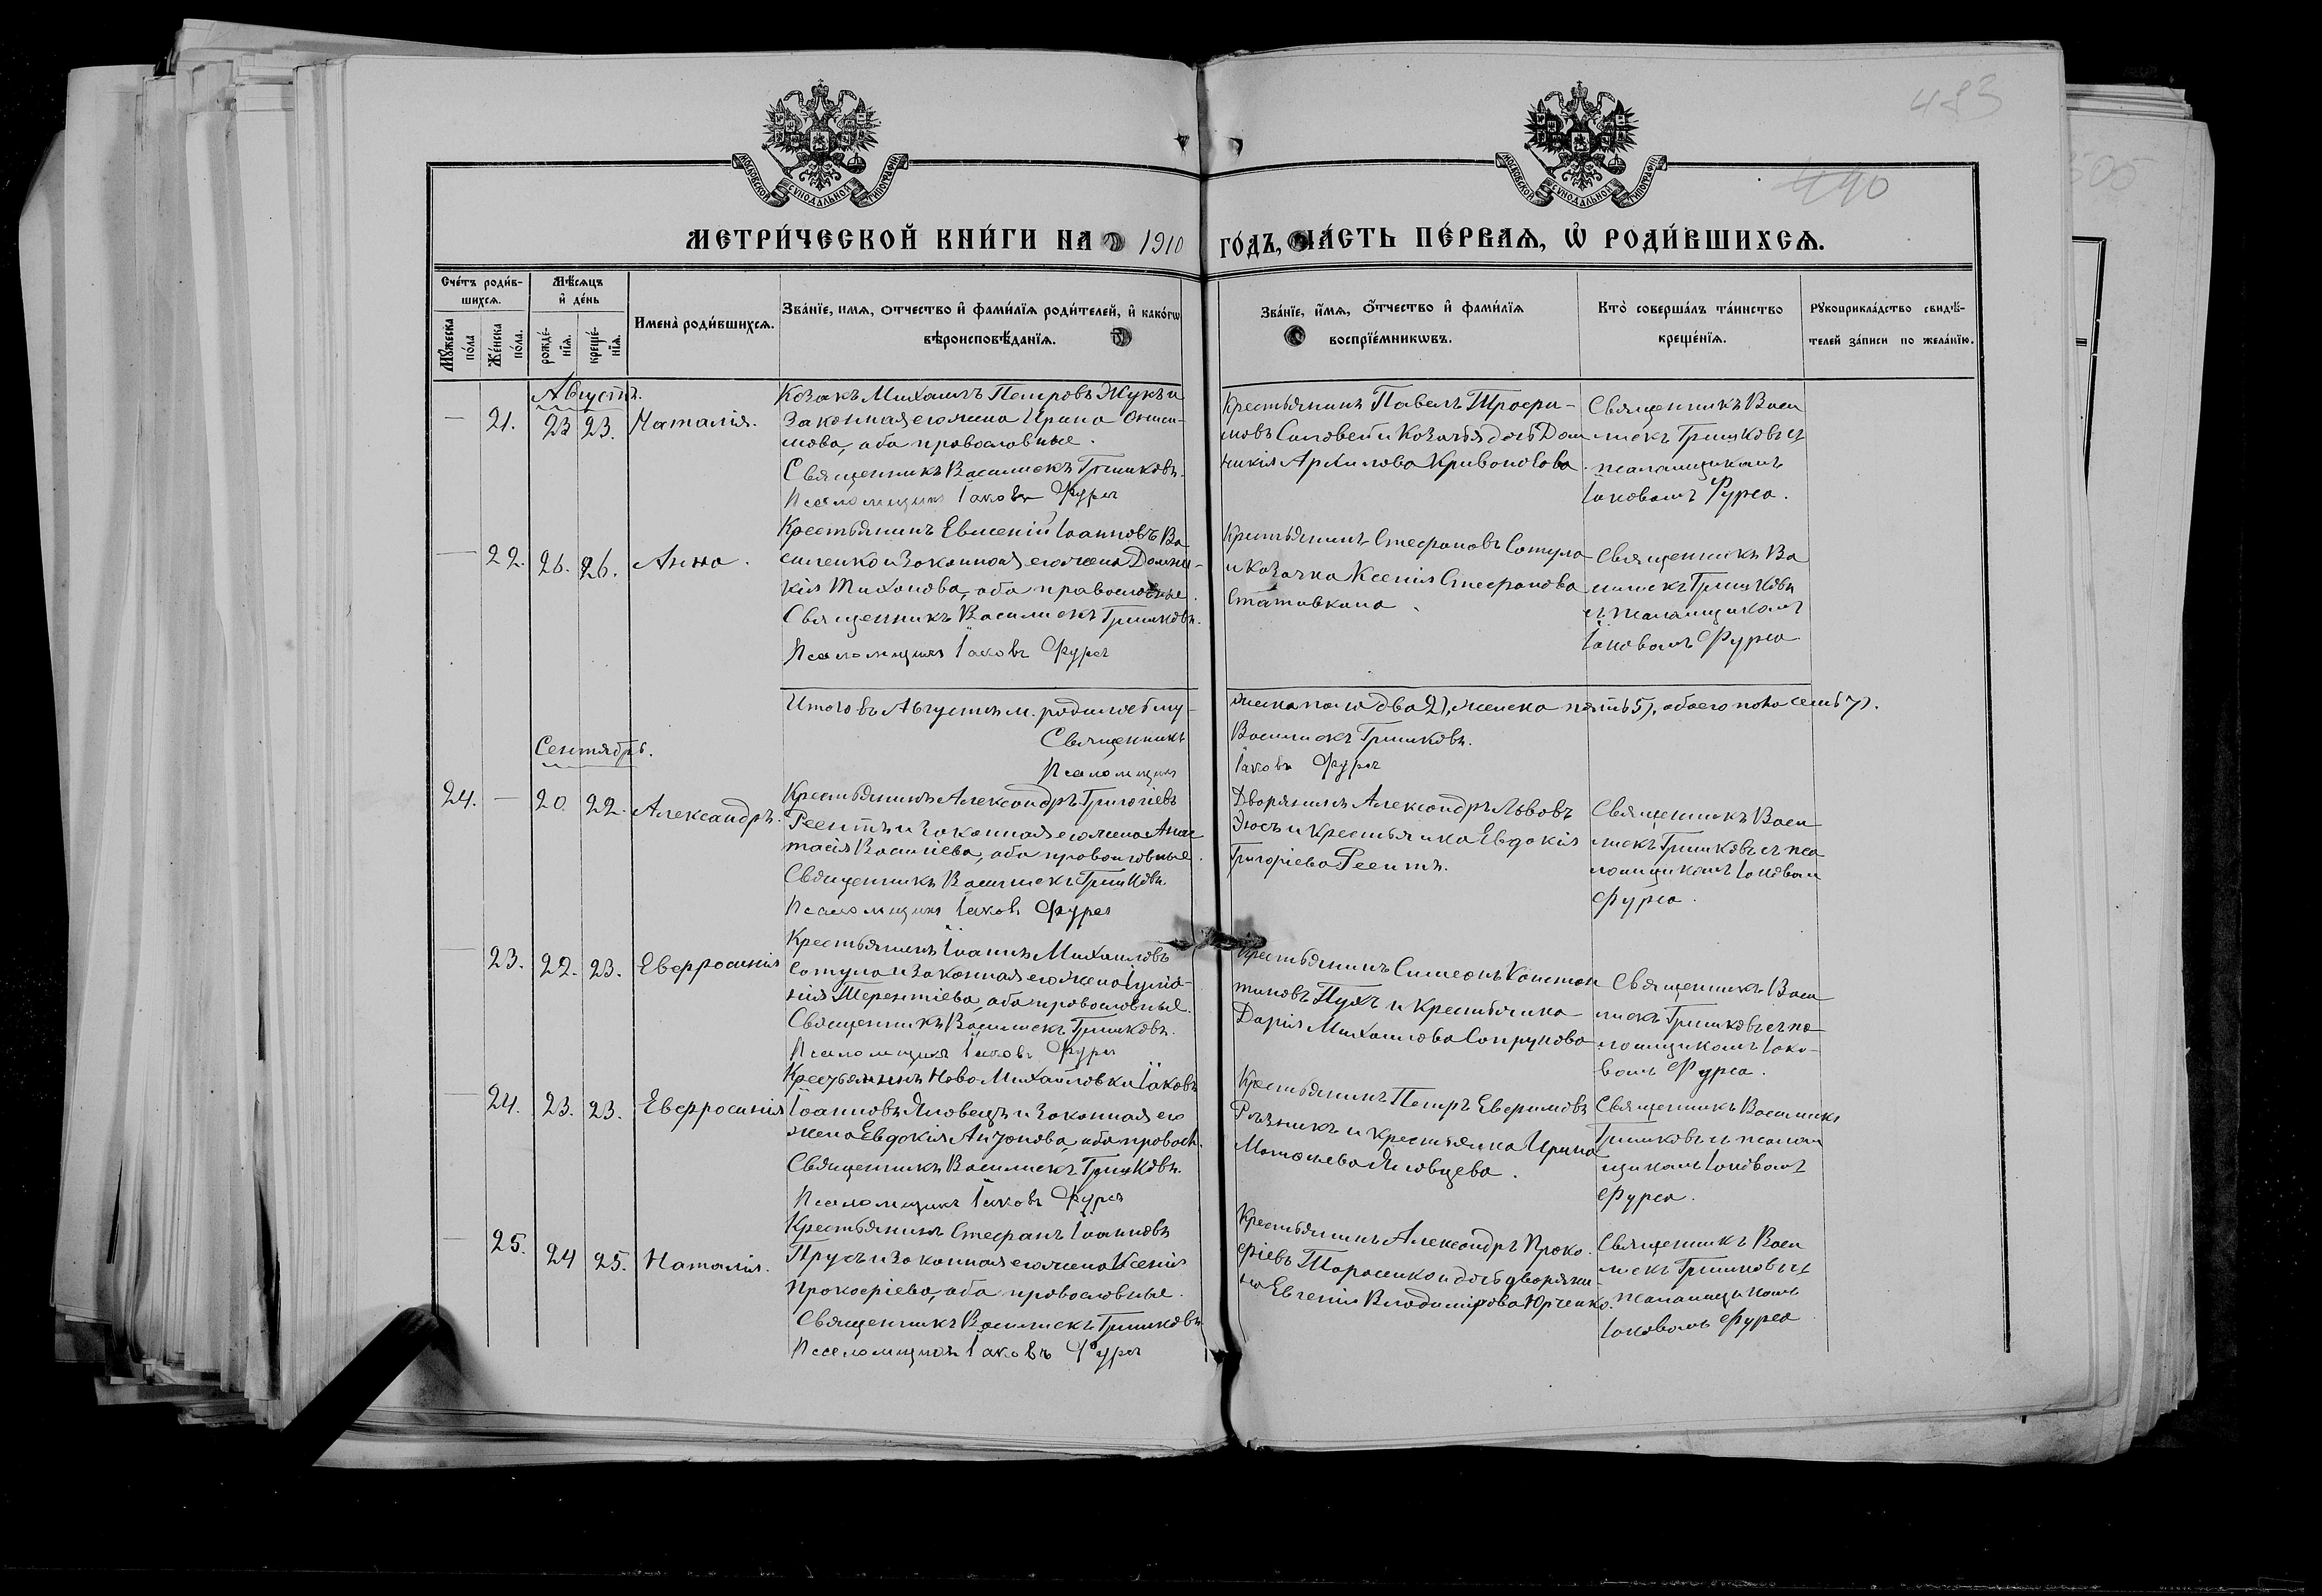 483
490
505
МОСКОВСКОЙ СѴНОДАЛЬНОЙ ТИПОГРАФІИ
МОСКОВСКОЙ СѴНОДАЛЬНОЙ ТИПОГРАФІИ
МЕТРИ́ЧЕСКОЙ КНИ́ГИ НА 1910 ГО́ДЪ, ЧА́СТЬ ПЕ́РВАѦ, Ѡ҆ РОДИ́ВШИХСѦ.
Сче́тъ роди́в-
шихсѧ.
Мѣ́сѧцъ
и҆ де́нь
Мꙋ́жеска по́ла
Же́нска по́ла.
рожде́-
нїѧ.
креще́-
нїѧ.
Имена̀ роди́вшихсѧ.
Зва́нїе, имѧ, отчество и҆ фами́лїѧ роди́телей, и҆ како́гѡ
вѣроисповѣ́данїѧ.
Зва́нїе, и҆́мѧ, о҆́тчество и҆ фами́лїѧ
воспрїе́мникѡвъ.
Кто̀ соверша́лъ та́инство
креще́нїѧ.
Рꙋкоприкла́дство свидѣ́-
телей за́писи по жела́нїю.
Августъ.
— 21. 23 23. Наталія.
Козакъ Михаилъ Петровъ Жукъ и
законная его жена Ирина Ониси-
мова, оба православные.
Священникъ Василискъ Гришковъ.
Псаломщикъ Іаковъ Фурса
Крестьянинъ Павелъ Трофи-
мовъ Соловей и Козачья дочь Дом
никія Архипова Кривоносова.
Священникъ Васи
лискъ Гришковъ съ
псаломщикомъ
Іаковомъ Фурса.
— 22. 26. 26. Анна.
Крестьянинъ Евмений Іоанновъ Ва
силенко и законная его жена Домни-
кія Тихонова, оба православные.
Священникъ Василискъ Гришковъ.
Псаломщикъ Іаковъ Фурса
Крестьянинъ Стефановъ Сотула
и козачка Ксенія Стефанова
Статовкина.
Священникъ Ва
силискъ Гришковъ
съ псаломщикомъ
Іаковомъ Фурса
Итого въ Августѣ м. родилось му-
жеска пола два 2), женска пять 5), обоего пола семь 7).
Священникъ Василискъ Гришковъ.
Псаломщикъ Іаковъ Фурса
Сентябрь.
24. — 20. 22. Александръ.
Крестьянинъ Александръ Григоріевъ
Реентъ и законная его жена Анас
тасія Василіева, оба православные.
Священникъ Василискъ Гришковъ.
Псаломщикъ Іаковъ Фурса
Дворянинъ Александръ Львовъ
Зюсь и крестьянка Евдокія
Григоріева Реентъ.
Священникъ Васи
лискъ Гришковъ съ пса
ломщикомъ Іаковом
Фурса.
— 23. 22. 23. Евфросинія
Крестьянинъ Іоаннъ Михаиловъ
Сотула и законная его жена Іуліа-
нія Терентіева, оба православные.
Священникъ Василискъ Гришковъ.
Псаломщикъ Іаковъ Фурса
Крестьянинъ Симеонъ Констан
тиновъ Пухъ и крестьянка
Дарія Михаилова Сопрунова
Священникъ Васи
лискъ Гришковъ съ пса-
ломщикомъ Іако-
вомъ Фурса.
— 24. 23. 23. Евфросинія
Крестьянинъ Ново Михайловки Іаковъ
Іоанновъ Яловецъ и законная его
жена Евдокія Антонова, оба правосл.
Священникъ Василискъ Гришковъ.
Псаломщикъ Іаковъ Фурса
Крестьянинъ Петръ Евфимовъ
Рѣзникъ и крестьянка Ирина
Матѳеева Яловцева.
Священникъ Василискъ
Гришковъ съ псалом
щикомъ Іаковомъ
Фурса.
— 25. 24 25. Наталія.
Крестьянинъ Стефанъ Іоанновъ
Прусъ и законная его жена Ксенія
Прокофіева, оба православные.
Священникъ Василискъ Гришковъ
Псаломщикъ Іаковъ Фурса
Крестьянинъ Александръ Проко-
фіевъ Тарасенко и дочь дворяни-
на Евгенія Владимірова Юрченко.
Священникъ Васи
лискъ Гришковъ съ
псаломщикомъ
Іаковомъ Фурса